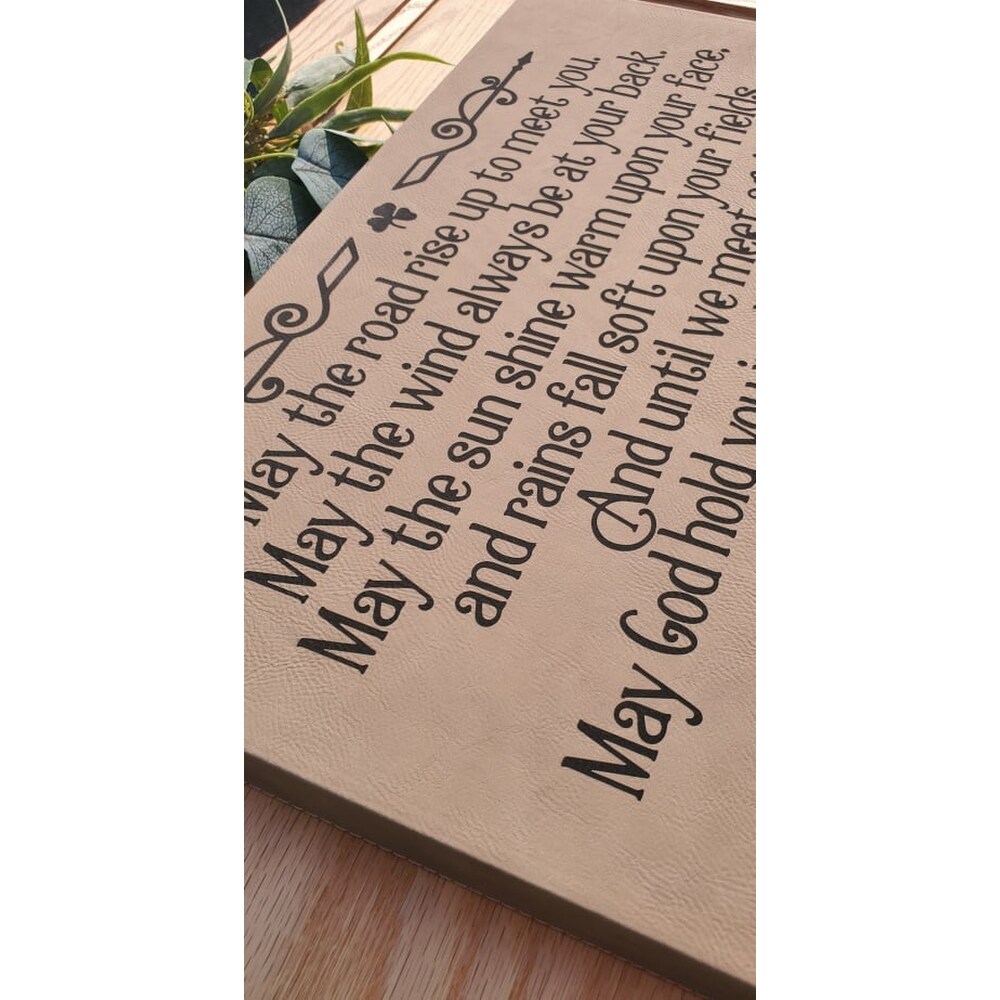 May the road rise up to meet you.
May the wind always be at your back.
May the sun shine warm upon your face,
and rains fall soft upon your fields.
And until we meet
May God hold you